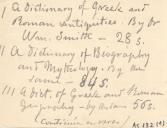 1 A Dictionary of Greek and
Roman Antiquities. By Dr
Wm. Smith — 28 s.
11 A Dictionary of Biography
and Mythology. By the
same 84 s.
111 A Dict. of Greek and Roman
Geography — by the same 56 s.
Continued